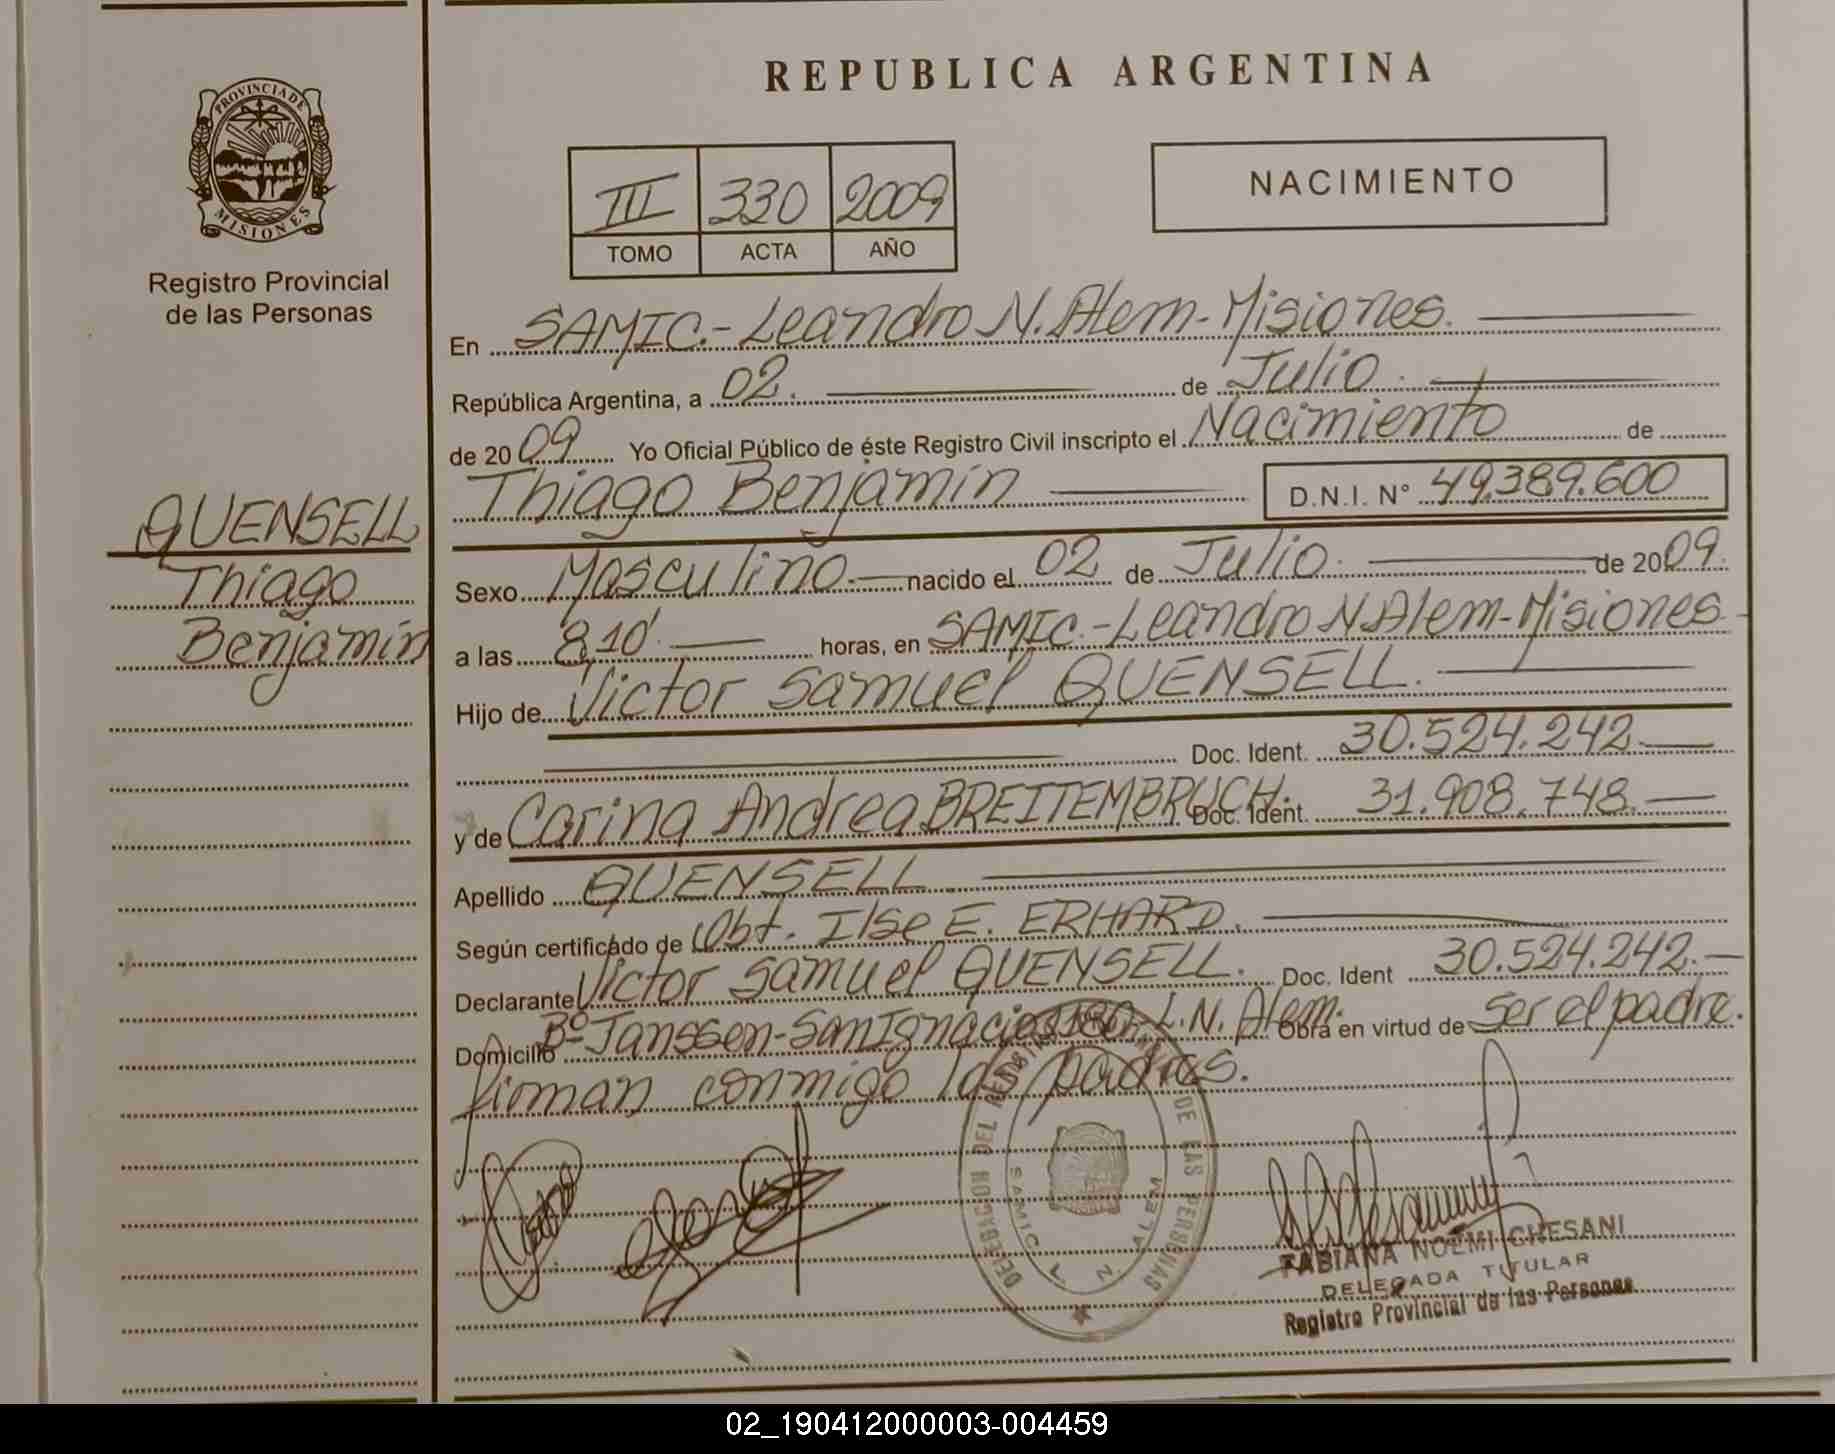 REPUBLICA ARGENTINA
PROVINCIA DE
MISIONES
Registro Provincial
de las Personas
III 330 2009
TOMO ACTA AÑO
NACIMIENTO
En SAMIC.- Leandro N. Alem - Misiones.
República Argentina, a 02. de Julio.
de 2009 Yo Oficial Público de éste Registro Civil inscripto el Nacimiento de
Thiago Benjamín D.N.I. N° 49.389.600
QUENSELL
Thiago
Benjamín
Sexo Masculino.- nacido el 02 de Julio. de 2009.
a las 8,10'. horas, en SAMIC.- Leandro N. Alem - Misiones
Hijo de Victor Samuel QUENSELL.
Doc. Ident. 30.524.242.-
y de Carina Andrea BREITEMBRUCH. Doc. Ident. 31.908.748.-
Apellido QUENSELL
Según certificado de Obt. Ilse E. ERHARD.
Declarante Victor Samuel QUENSELL. Doc. Ident 30.524.242.-
Domicilio Bº Janssen - San Ignacio L.N. Alem. Obra en virtud de ser el padre.
firman conmigo los padres.
DELEGACION DEL REGISTRO DE LAS PERSONAS
SAMIC L. N. ALEM
FABIANA NOEMI CHESANI
DELEGADA TITULAR
Registro Provincial de las Personas
02_190412000003-004459